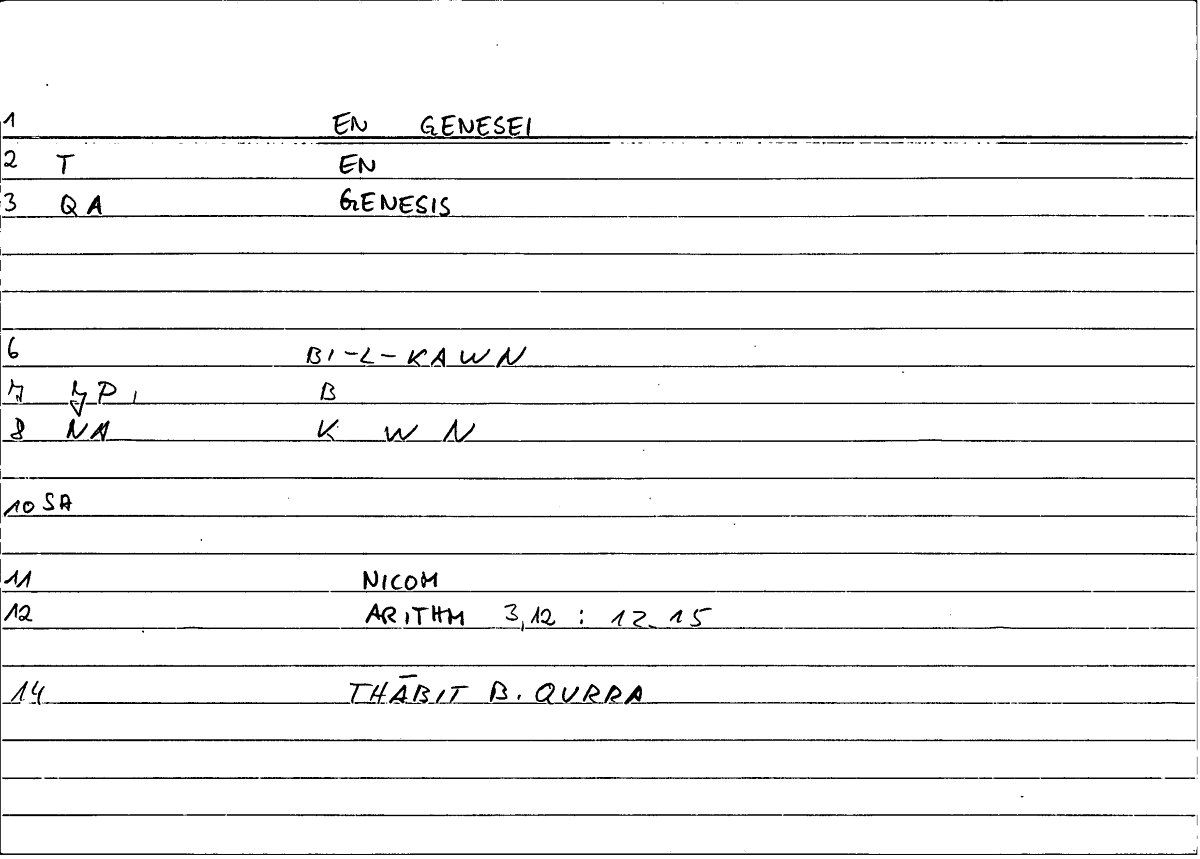 1 EN GENESEI
2 T EN
3 QA GENESIS
6 BI-L-KAWN
7 P B
8 NA K W N
10 SA
11 NICOM
12 ARITHM 3,12 : 12.15
14 THĀBIT B. QURRA